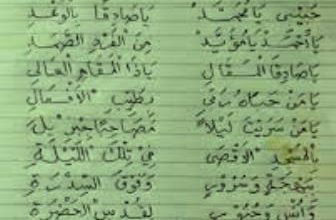 حبيبي يا محمد يا صادقا بالوعد
يا أحمد يا مؤيد من الفرد الصمد
يا صادق المقال يا ذا المقام العالي
يا من حباه ربي بطيب الافعال
يا من سريت ليلا مصاحبا جبريل
بالمسجد الاقصى في تلك الليلة
وفوق السدرة
لقدس الحضرة